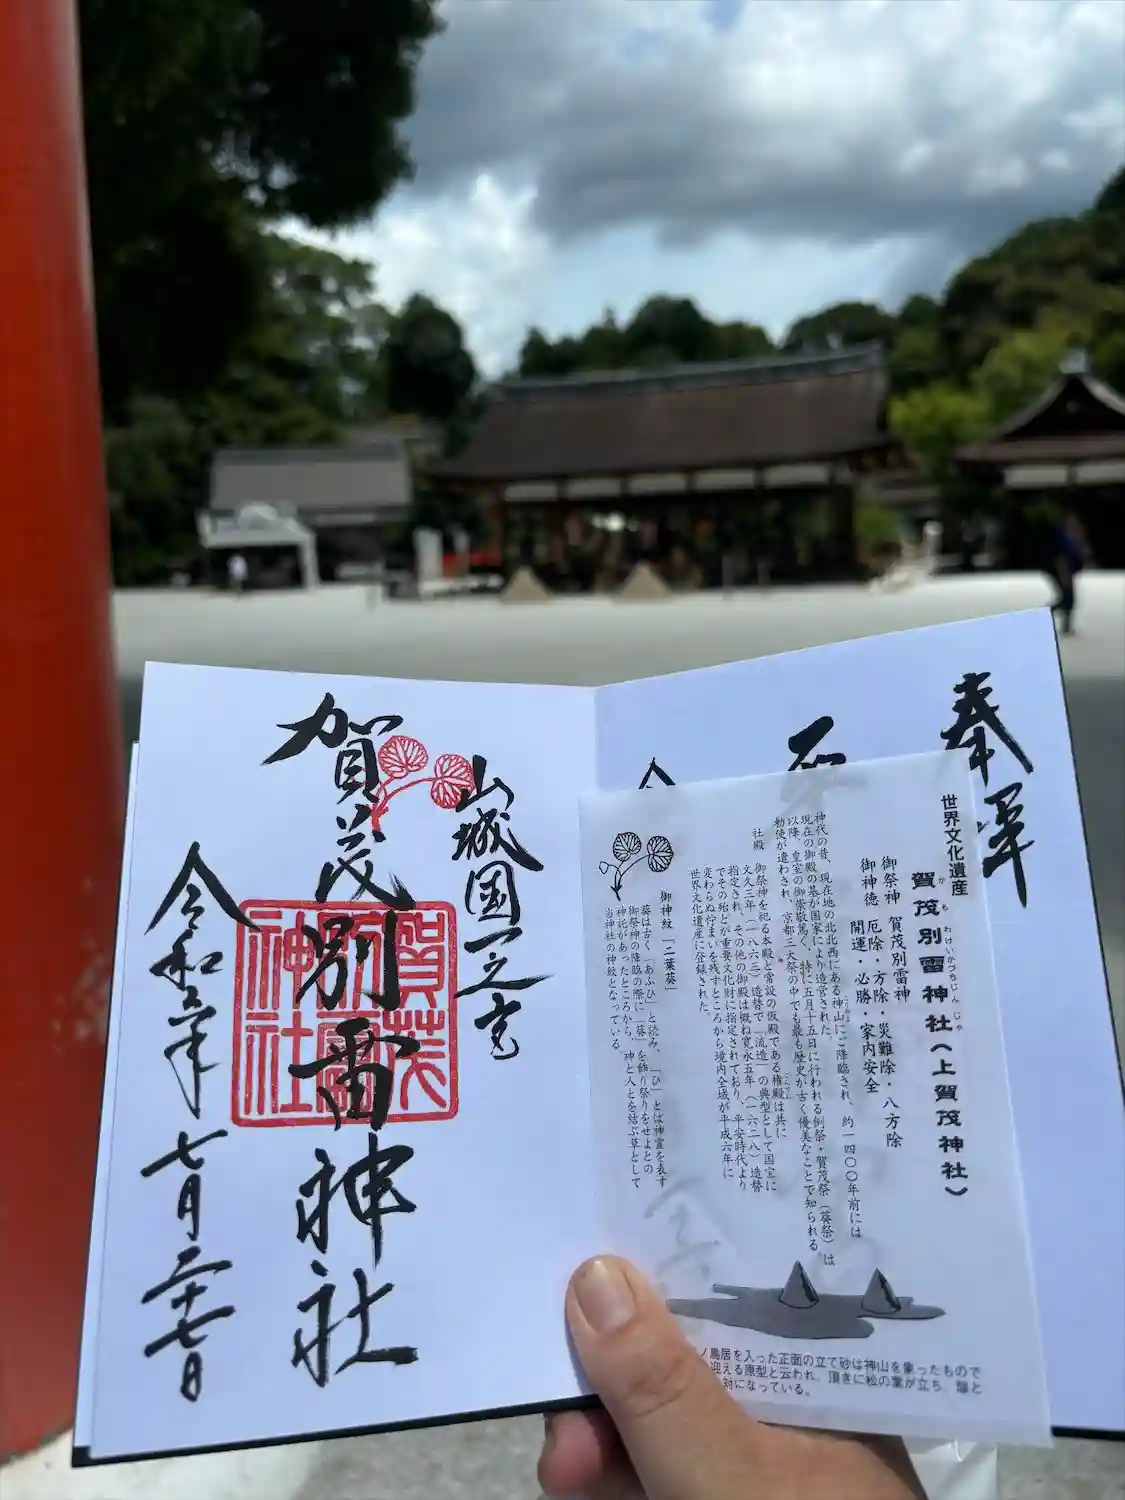 奉拝
世界文化遺産
賀茂別雷神社(上賀茂神社)
かもわけいかづちじんじゃ
御祭神 賀茂別雷神
御神徳 厄除・方除・災難除・八方除
開運・必勝・家内安全
神代の昔、現在地の北北西にある神山にご降臨され、約一四〇〇年前には
現在の御殿の基が国家により造営された。
以降、皇室の御崇敬篤く、特に五月十五日に行われる例祭・賀茂祭(葵祭)は
勅使が遣わされ、京都三大祭の中でも最も歴史が古く優美なことで知られる
社殿 御祭神を祀る本殿と常設の仮殿である権殿は共に
文久三年(一八六三)造替で「流造」の典型として国宝に
指定され、その他の御殿は概ね寛永五年(一六二八)造替
でその殆どが重要文化財に指定されており、平安時代より
変わらぬ佇まいを残すところから境内全域が平成六年に
世界文化遺産に登録された。
御神紋「二葉葵」
葵は古く「あふひ」と読み、「ひ」とは神霊を表す
御祭神の降臨の際に「葵」を飾り祭りをせよとの
神託があったところから、神と人とを結ぶ草として
当神社の神紋となっている
ノ鳥居を入った正面の立て砂は神山を象ったもので
迎える原型と云われ、頂きに松の葉が立ち、雄と
対になっている。
山城国一之宮
賀茂別雷神社
賀茂別雷神社
令和六年七月二十七日